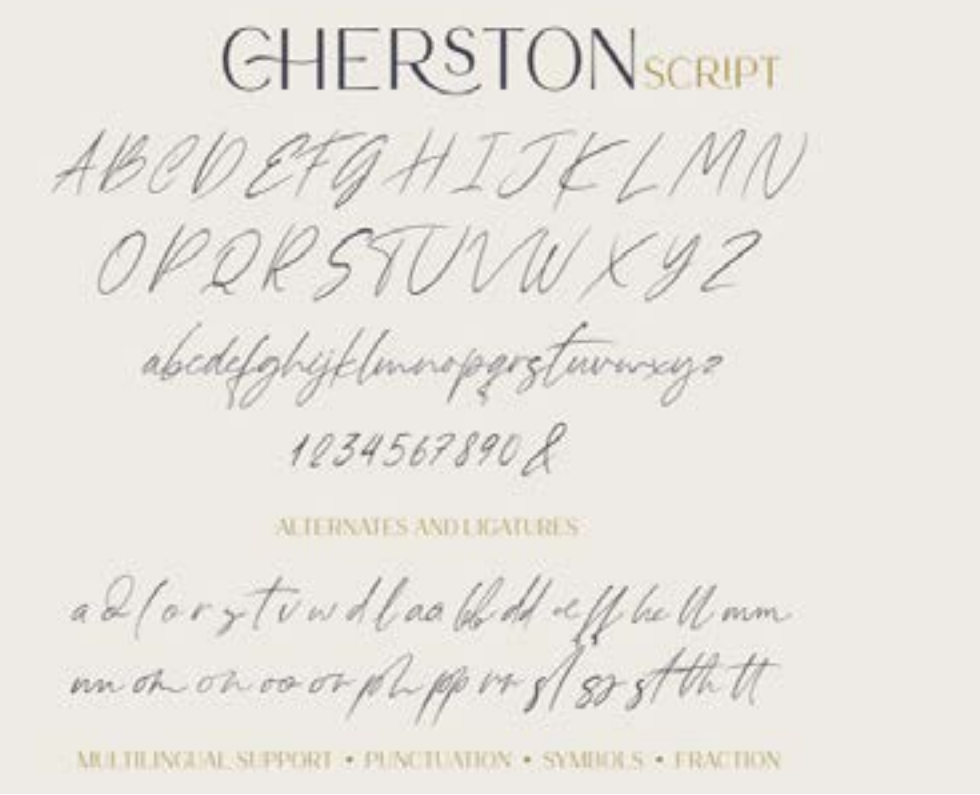 CHERSTON SCRIPT
A B C D E F G H I J K L M N
O P Q R S T U V W X Y Z
abcdefghijklmnopqrstuvwxyz
1234567890 &
ALTERNATES AND LIGATURES
a d l o r s t v w d l aa bb dd ee ff he ll mm
nn om on oo or ph pp rr sl ss st th tt
MULTILINGUAL SUPPORT • PUNCTUATION • SYMBOLS • FRACTION